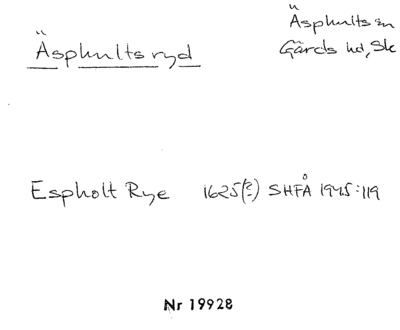 Äsphultsryd
Äsphults sn
Gärds hd, Sk
Espholt Rye 1625(?) SHFÅ 1945:119
Nr 19928